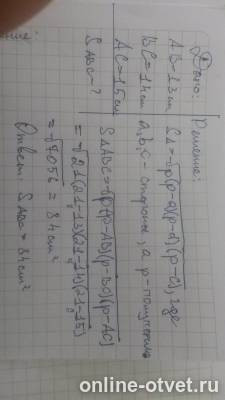 Дано:
AB=13см
BC=14см
AC=15см
SABC-?
Решение:
SΔ=√p(p-a)(p-b)(p-c), где
a,b,c- стороны, а p-полупериметр
SΔABC=√p(p-AB)(p-BC)(p-AC)
=√21(21-13)(21-14)(21-15)
=√7056=84см²
Ответ: SABC=84см²
online-otvet.ru